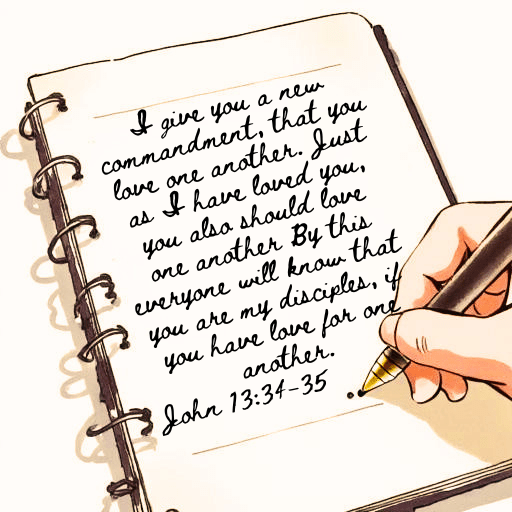 I give you a new
commandment, that you
love one another. Just
as I have loved you,
you also should love
one another By this
everyone will know that
you are my disciples, if
you have love for one
another.
John 13:34-35